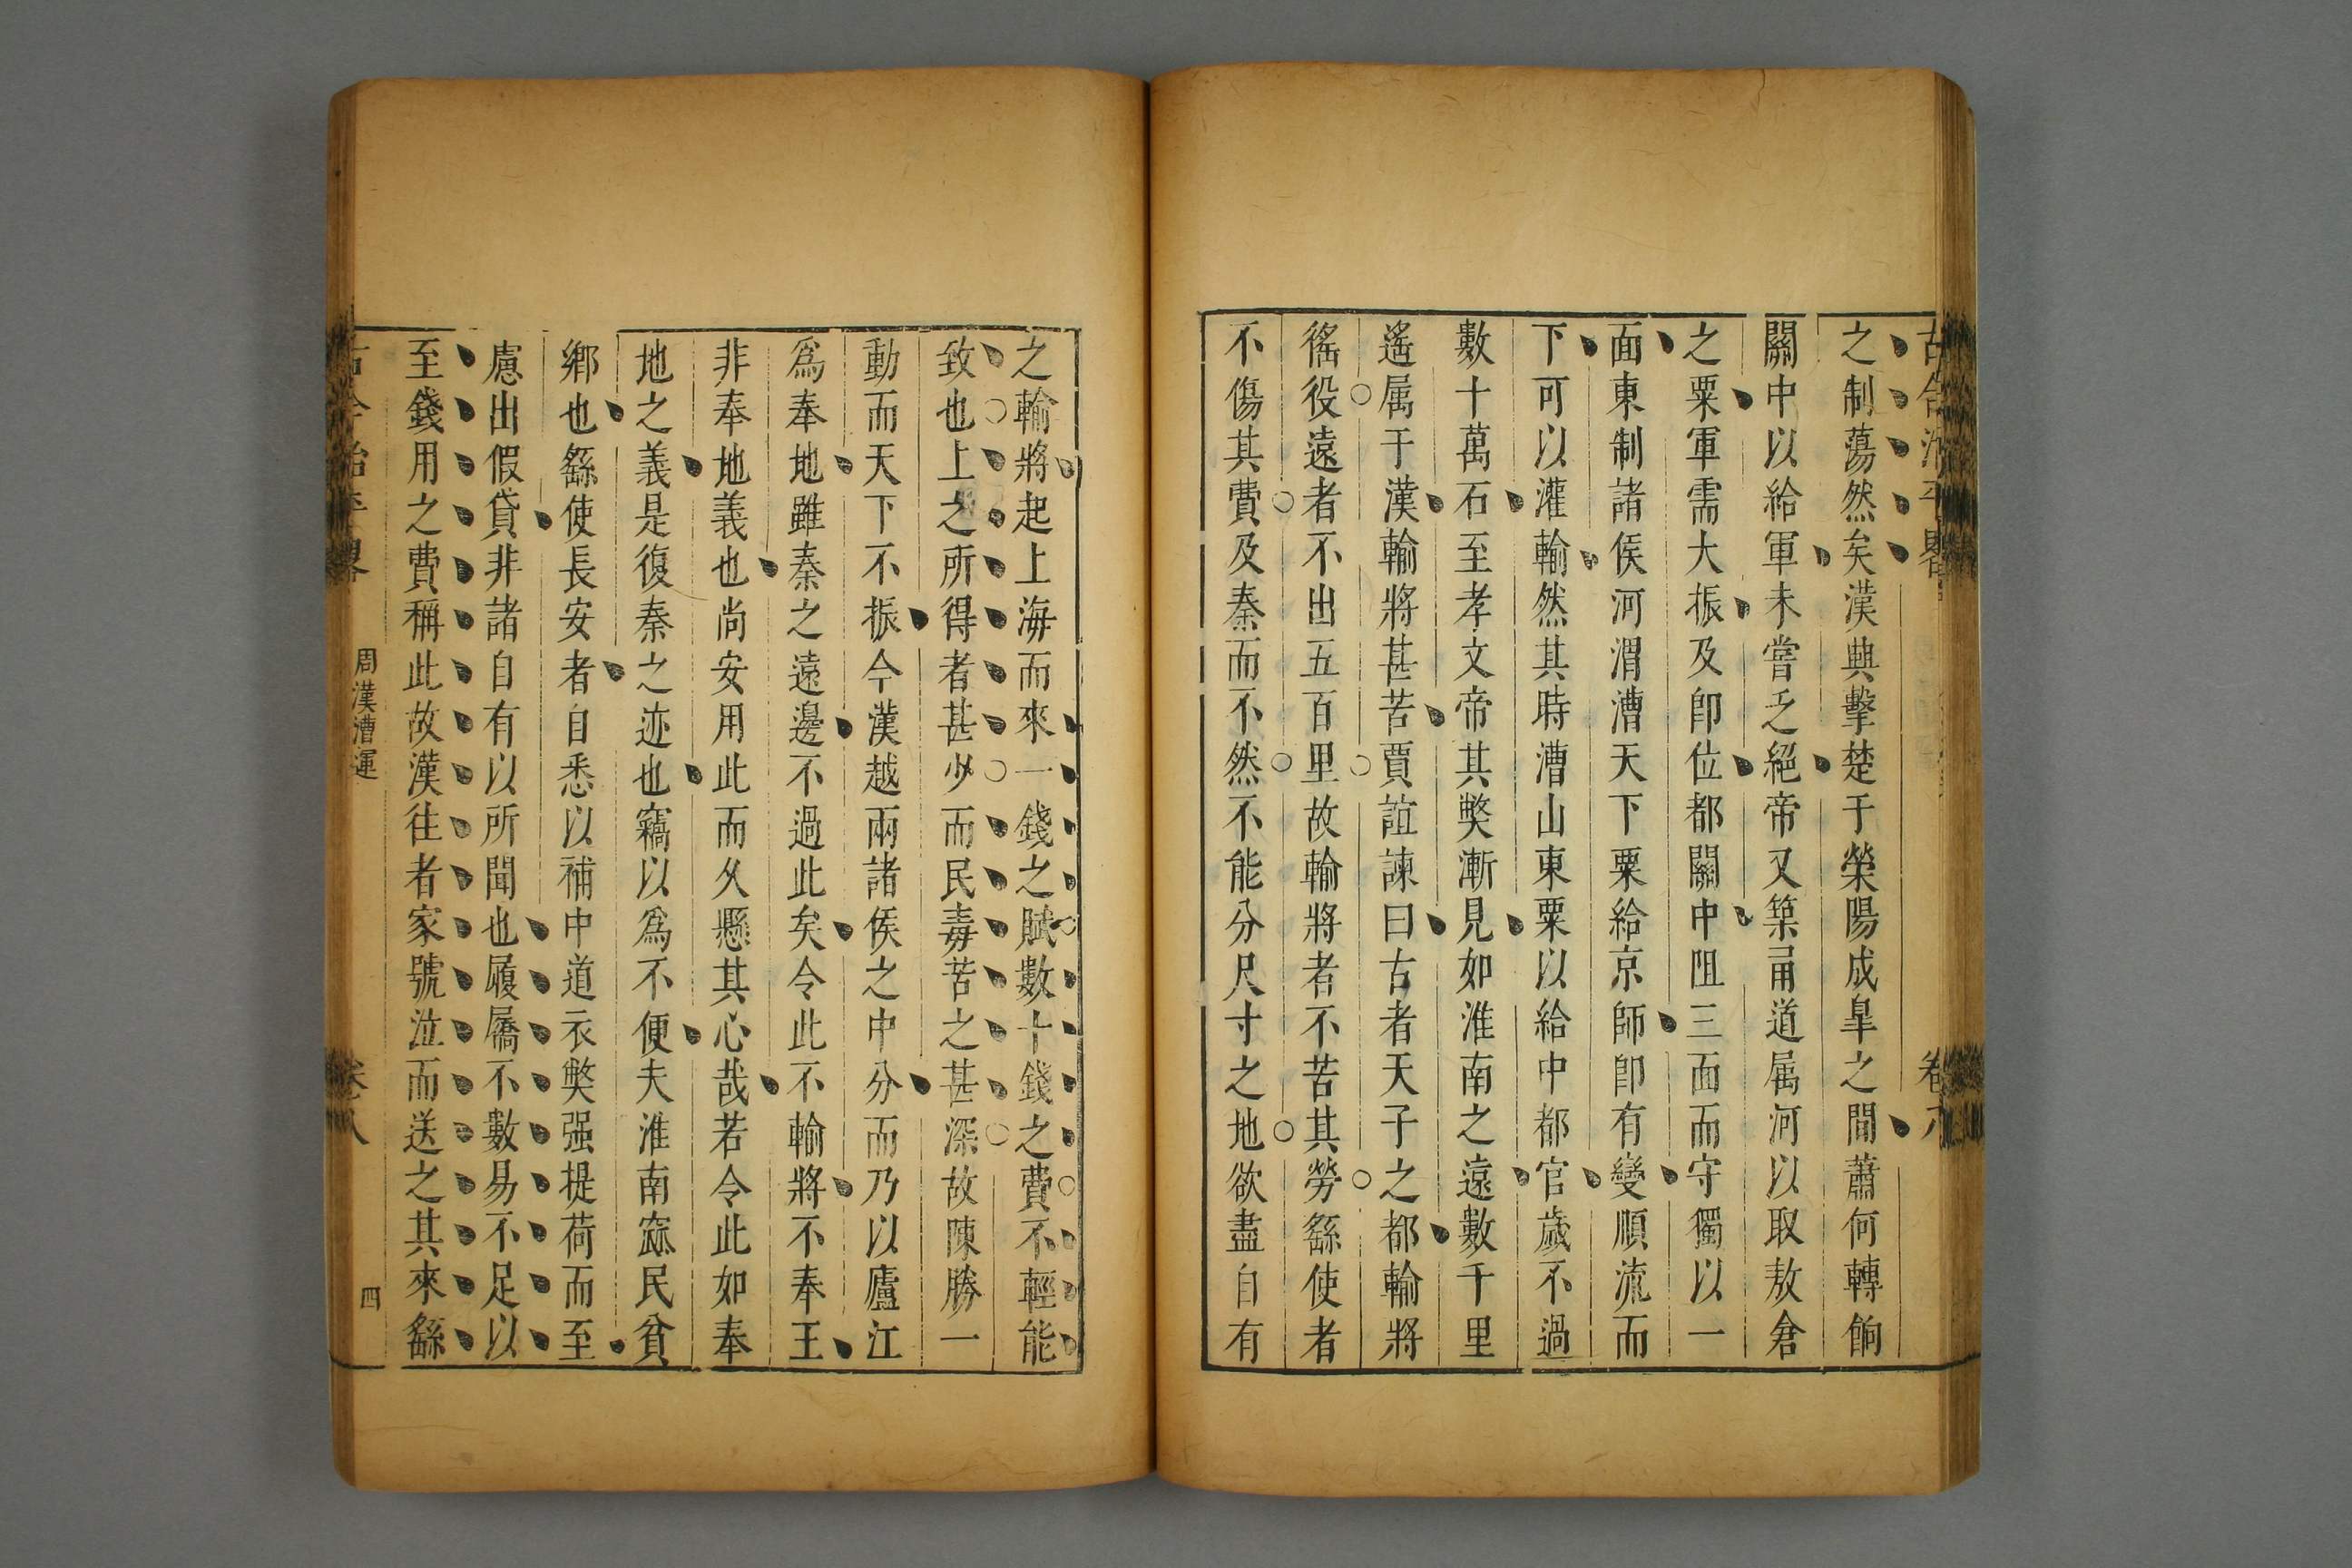 之制蕩然矣漢興擊楚于榮陽成臯之間蕭何轉餉
關中以給軍未嘗乏絕帝又築甬道属河以取敖倉
之粟軍需大振及卽位都關中阻三面而守獨以一
面東制諸侯河渭漕天下粟給京師卽有變順流而
下可以灌輸然其時漕山東粟以給中都官歲不過
數十萬石至孝文帝其獘漸見如淮南之遠數千里
遙属于漢輸將甚苦賈誼諫曰古者天子之都輸將
徭役遠者不出五百里故輸將者不苦其勞繇使者
不傷其費及秦而不然不能分尺寸之地欲盡自有
之輸將起上海而來一錢之賦數十錢之費不輕能
致也上之所得者甚少而民毒苦之甚深故陳勝一
動而天下不振今漢越兩諸侯之中分而乃以廬江
爲奉地雖秦之遠邊不過此矣令此不輸將不奉王
非奉地義也尚安用此而久懸其心哉若令此如奉
地之義是復秦之迹也竊以爲不便夫淮南窳民貧
鄉也繇使長安者自悉以補中道衣獘强提荷而至
慮出假貸非諸自有以所聞也履屩不數易不足以
至錢用之費稱此故漢往者家號泣而送之其來繇
周漢漕運
四